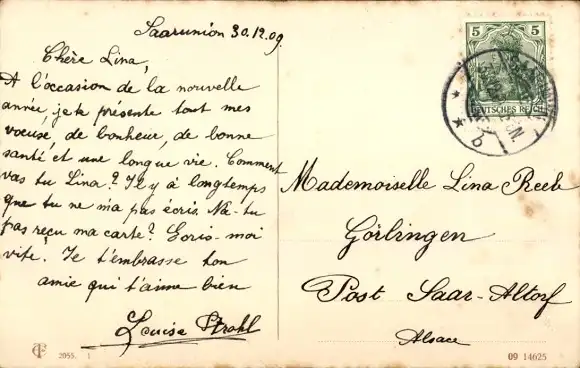 Saarunion 30.12.09.
Chère Lina,
A l'occasion de la nouvelle
année, je te présente tout mes
voeux, de bonheur, de bonne
santé et une longue vie. Comment
vas tu Lina? Il y à longtemps
que tu ne m'a pas écris. Na-tu
pas reçu ma carte? Ecris-moi
vite. Je t'embrasse ton
amie qui t'aime bien
Louise Strohl
2055. 1
5 5
DEUTSCHES REICH
b
Mademoiselle Lina Reeb
Görlingen
Post Saar-Altorf
Alsace
09 14625